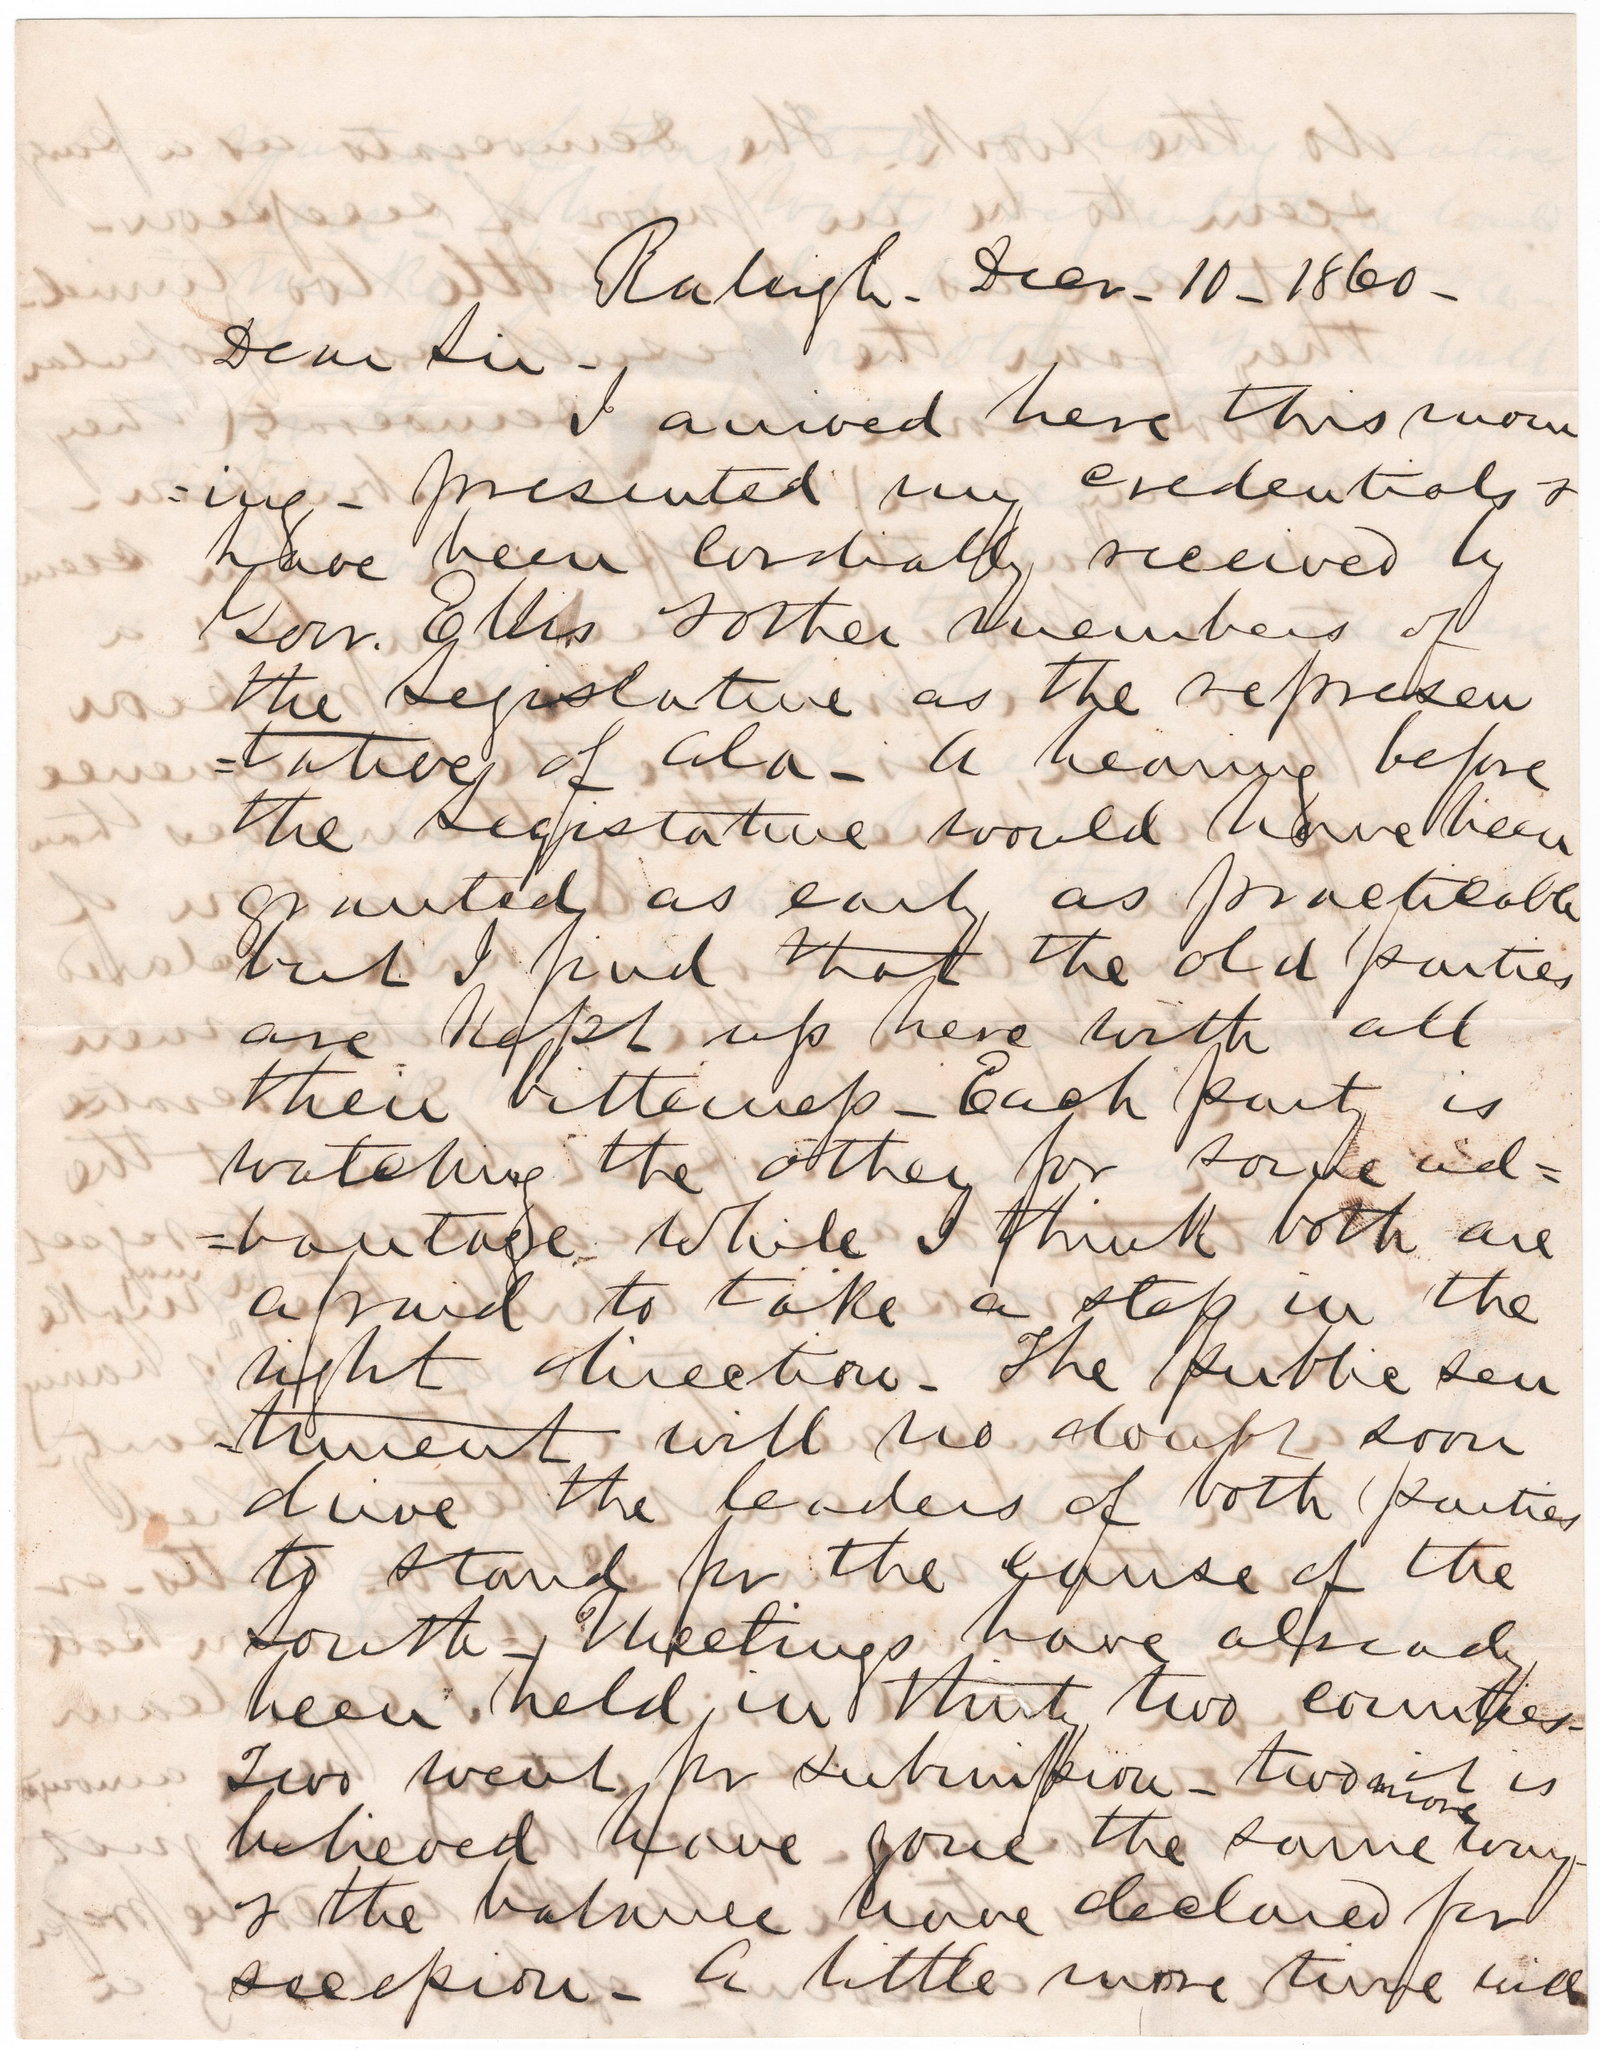 Raleigh - Decr - 10 - 1860 -
Dear Sir -
I arrived here this morn
=ing - presented my credentials &
have been cordially received by
Govr. Ellis & other members of
the Legislature as the represen
=tative of Ala - A hearing before
the Legislature would have been
granted as early as practicable
but I find that the old parties
are kept up here with all
their bitterness - Each party is
watching the other for some ad=
=vantage while I think both are
afraid to take a step in the
right direction - The public sen
-timent will no doubt soon
drive the leaders of both parties
to stand for the cause of the
South - Meetings have already
been held in thirty two counties -
Two went for submission - two more it is
believed have gone the same way -
& the balance have declared for
secession - A little more time will